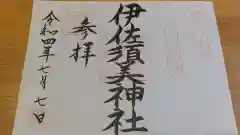 参拝
伊佐須美神社
令和四年七月七日